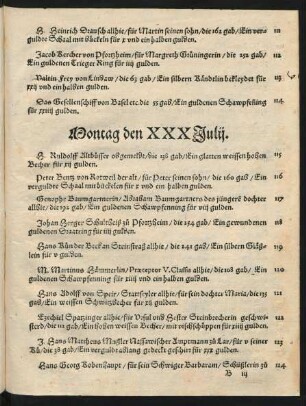 H. Heinrich Stauffh allhie/für Martin seinen sohn/die 162 gab/Ein ver- 111
guldte Schaal mit bückeln für x vnd ein halben gulden.
Jacob Kercher von Pfortzheim/für Margreth Grüningerin / die 252 gab/ 112
Ein guldenen Trieger Ring für iiij gulden.
Valtin Frey von Linßaw/die 63 gab / Ein silbern Kändtlin bekleydet für 113
xxij vnd ein halben gulden.
Das Gesellenschiff von Basel etc. die 55 gab/ Ein guldenen Schawpfenning 114
für xxij gulden.
Montag den XXX Julij.
H. Ruldolff Althüsser obgemeldt/die 138 gab/Ein glatten weissen hohen 115
Becher für xij gulden.
Peter Bentz von Rotweil der alt/ für Peter seinen sohn/ die 160 gab/ Ein 116
verguldte Schaal mit bückelen für x vnd ein halben gulden.
Genophe Baumgarmerin/Abraham Baumgartners des jüngern dochter 117
allhie/ die 192 gab/ Ein guldenen Schawpfenning für viij gulden.
Johan Herger Schultheiß zu Pfortzheim/ die 254 gab/Ein gewundenen 118
guldenen Staatring für iiij gulden.
Hans Bün der Beck an Steinstraß allhie/ die 242 gab/Ein silbern Gläß- 119
lein für v gulden.
M. Martinus Hämmerlin/ Præceptor V. Classis allhie/die 108 gab/ Ein 120
guldenen Schawpfenning für xiiij vnd ein halben gulden.
Hans Adolff von Speir/ Statsspyler allhie/für sein dochter Maria/die 153 121
gab/Ein weissen Schwitzbecher für xj gulden.
Ezechiel Spatzinger allhie/für Vrsul vnd Hester Steinbrecherin geschwö- 122
sterd/die 111 gab/Ein stoßen weissen Becher/mit rebschöppen für xiiij gulden.
J. Hans Mattheus Mußler Nassawischer Amptmann zu Lar/für v seiner 123
Kü/die 38 gab/Ein verguldt ablang gedeckt geschirr für xxx gulden.
Hans Georg Bobenhaupt/ für sein Schwiger Barbaram/ Schüglerin zů 124
B iij